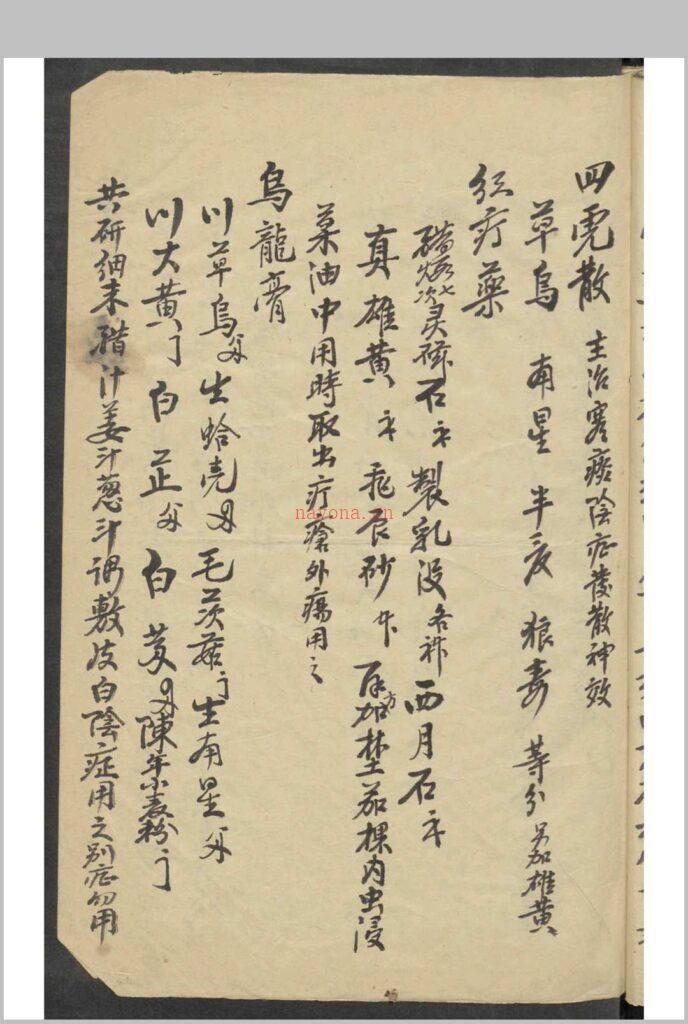 四虎散 主治寒痰陰症發散神效
草烏 南星 半夏 狼毒 等分 另加雄黃
疔藥
石 製乳没 各 西月石
真雄黃 飛辰砂 加 茄棵内虫浸
菜油中用時取出疔瘡外瘍用之
烏龍膏
川草烏 生蛤壳 毛茨菇 生南星
川大黃 白芷 白芨 陳年小麦粉
共研细末醋汁姜汁蔥汁調敷皮白陰症用之别症勿用
nayona.cn